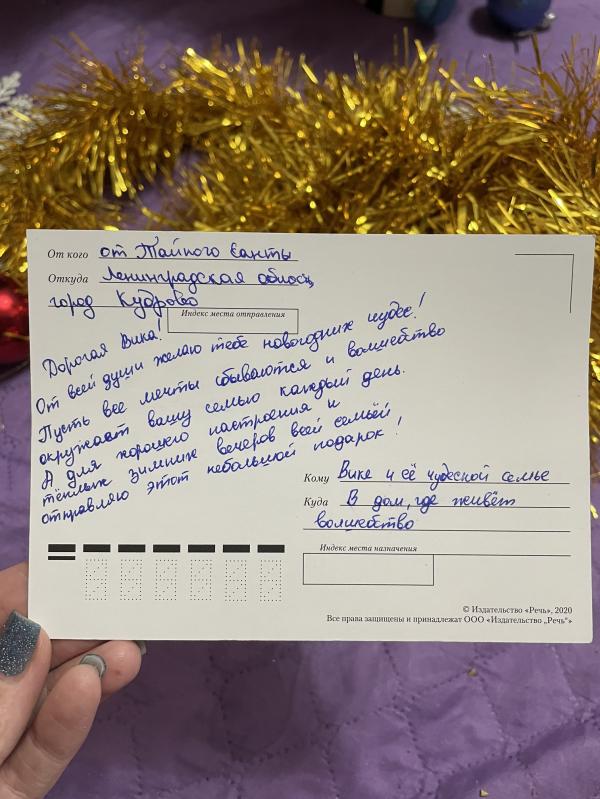 От кого от Тайного Санты
Откуда Ленинградская область
город Кудрово
Индекс места отправления
Дорогая Вика!
От всей души желаю тебе новогодних чудес!
Пусть все мечты сбываются и волшебство
окружает вашу семью каждый день.
А для хорошего настроения и
тёплых зимних вечеров всей семьёй
отправляю этот небольшой подарок!
Кому Вике и её чудесной семье
Куда В дом, где живёт
волшебство
Индекс места назначения
© Издательство «Речь», 2020
Все права защищены и принадлежат ООО «Издательство „Речь“»